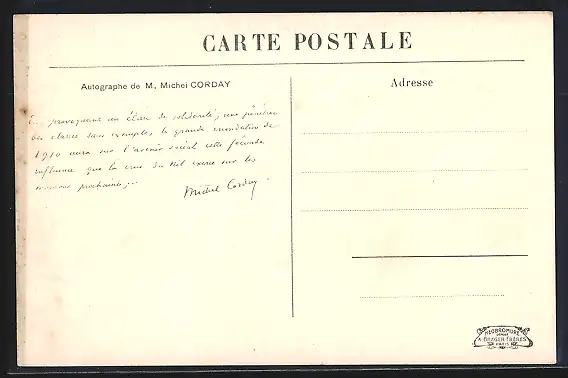 CARTE POSTALE
Autographe de M, Michel CORDAY
Adresse
En provoquant un élan de solidarité, une pénétration
des classes sans exemples, la grande inondation de
1910 aura sur l'avenir social cette féconde
influence que la crue du Nil exerce sur les
moissons prochaines...
Michel Corday
NÉOBROMURE
A. BREGER FRÈRES
PARIS